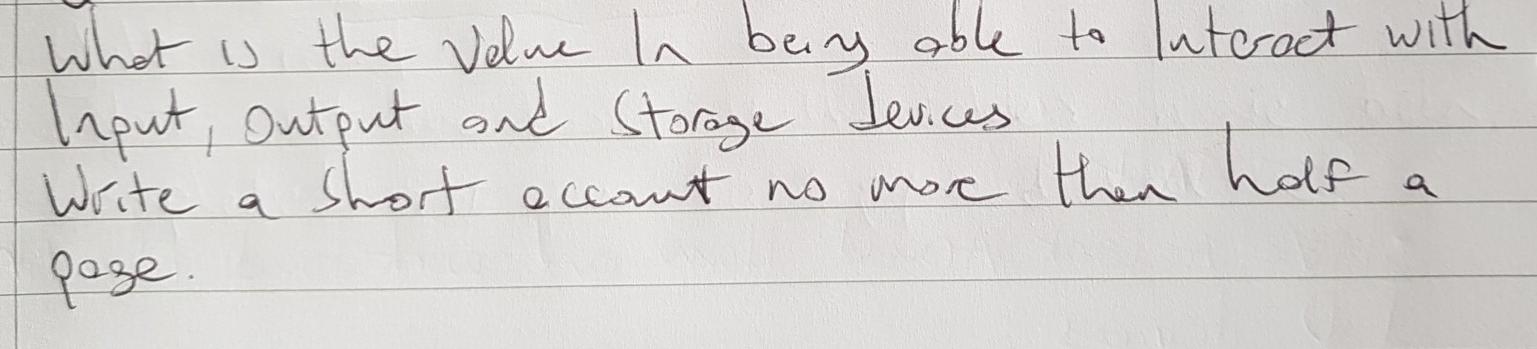 What is the Value In being able to Interact with
Input, Output and Storage devices
Write a short account no more then half a
page.